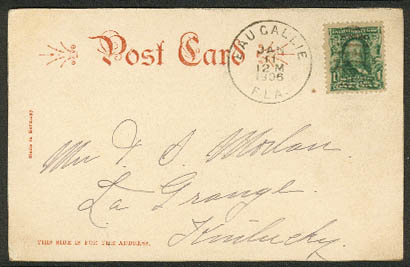 Post Card
EAU GALLIE
JAN
11
12 M
1906
FLA.
Made in Germany
Mr T. S. Morlan.
La Grange.
Kentucky.
THIS SIDE IS FOR THE ADDRESS.